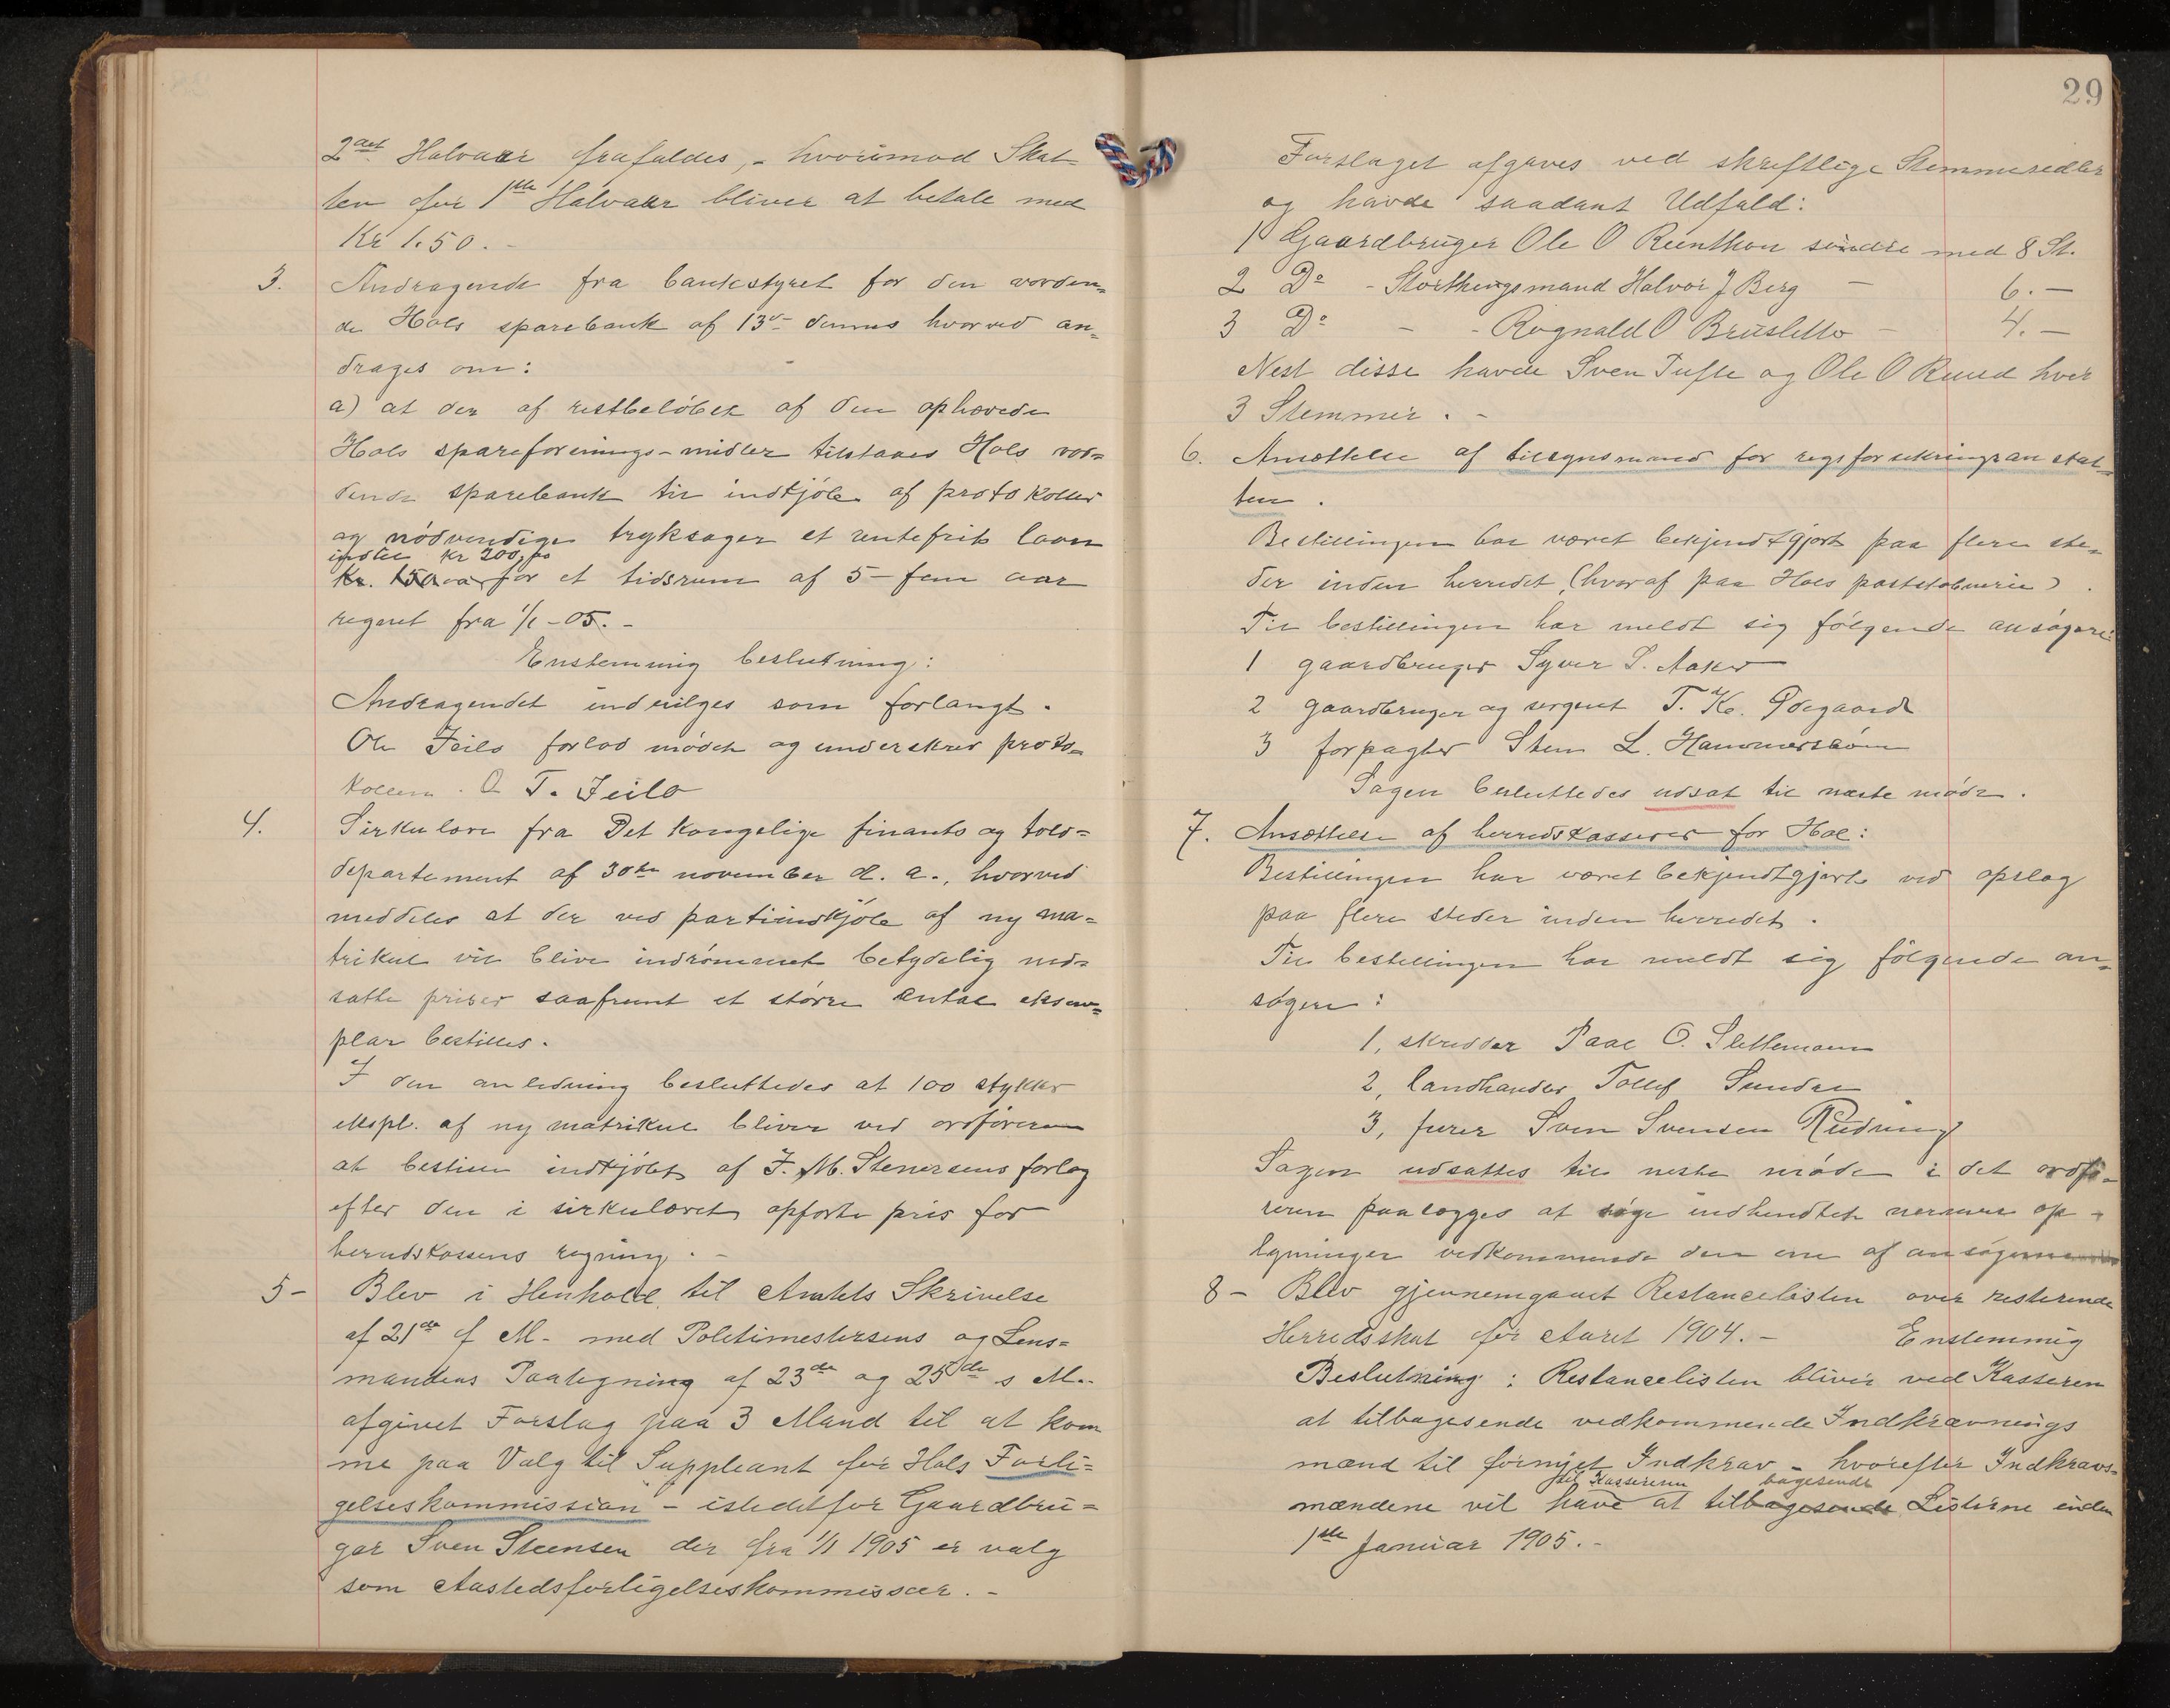 2det Halvaar frafaldes, - hvorimod Skat
ten for 1ste Halvaar bliver at betale med
Kr 1.50. -
3. Andragende fra bankstyret for den vorden=
de Hols sparebank af 13de dennes hvorved an=
drages om:
a) at der af restbeløbet af den ophævede
Hols spareforenings-midler tilstaaes Hols vor=
dende sparebank til indkjøb af protokoller
og nødvendige tryksager et rentefrit laan
indtil Kr 200,00
Kr. 150 for et tidsrum af 5 - fem aar
regnet fra 1/1 - 05. -
Enstemmig beslutning:
Andragendet indvilges som forlangt.
Ole Jeilo forlod mødet og underskrev proto=
kollen. O T. Jeilo
4. Sirkulære fra Det kongelige finants og told=
departement af 30te november d. a., hvorved
meddeles at der ved partiindkjøb af ny ma=
trikul vil blive indrømmet betydelig ned=
satte priser saafremt et større antal eksem=
plar bestilles.
I den anledning besluttedes at 100 stykker
ekspl. af ny matrikul bliver ved ordføreren
at bestille indkjøbt af J. M. Stenersens forlag
efter den i sirkulæret opførte pris for
herredskassens regning. -
5 - Blev i Henhold til Amtets Skrivelse
af 21de f M. med Politimestersens og Lens=
mandens Paategning af 23de og 25de s M.
afgivet Forslag paa 3 Mand til at kom
me paa Valg til Suppleant for Hols Forli=
gelseskommission - istedetfor Gaardbru=
ger Sven Steensen der fra 1/1 1905 er valg
som Aastedsforligelseskommissær. -
29
Forslaget afgaves ved skriftlige Stemmesedler
og havde saadant Udfald:
1 Gaardbruger Ole O Reinthon søndre med 8 St.
2 Do - Storthingsmand Halvor J Berg - 6. -
3 Do - - Rognald O Brusletto - 4. -
Nest disse havde Sven Tufte og Ole O Ruud hver
3 Stemmer. -
6. Ansættelse af tilsynsmand for rigsforsikringsanstal=
ten.
Bestillingen har været bekjendtgjort paa flere ste=
der inden herredet, (hvoraf paa Hols poststabuerie).
Til bestillingen har meldt sig følgende ansøgere:
1 gaardbruger Syver S. Aaker
2 gaardbruger og sergent T. K. Ødegaard
3 forpagter Sten L. Hammersbøen
Sagen besluttedes udsat til næste møde.
7. Ansættelse af herredskasserer for Hol:
Bestillingen har været bekjendtgjort ved opslag
paa flere steder inden herredet.
Til bestillingen har meldt sig følgende an=
søgere:
1, skredder Paal O. Slettemoen
2, landhandler Tollef Sundre
3, furer Sven Svensen Rudningen
Sagen udsattes til neste møde i det ordfø=
reren paalægges at søge indhendtet nermere op=
lysninger vedkommende den ene af ansøgerne
8 - Blev gjennemgaaet Restancelisten over resterende
Herredsskat for Aaret 1904. - Enstemmig
Beslutning: Restancelisten bliver ved Kasseren
at tilbagesende vedkommende Indkrævnings
mænd til fornyet Indkrav - hvorefter Indkrævs=
til Kassereren bagesende
mændene vil have at tilbagesende Listerne inden
1ste Januar 1905. -